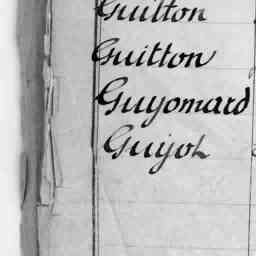 Guitton
Guitton
Guyomard
Guijot